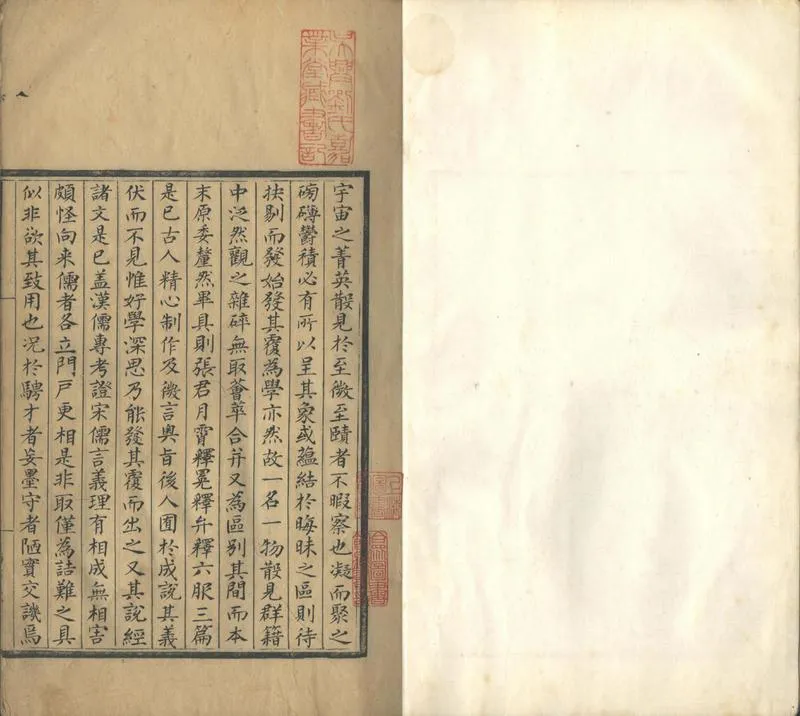 吳興劉氏嘉
業堂藏書記
宇宙之菁英散見於至微至賾者不暇察也凝而聚之
磅礴鬱積必有所以呈其象或蘊結於晦昧之區則待
抉剔而發始發其覆為學亦然故一名一物散見群籍
中泛然觀之雜碎無取薈萃合并又為區別其間而本
末原委釐然畢具則張君月霄釋冕釋弁釋六服三篇
是已古人精心制作及微言奧旨後人囿於成說其義
伏而不見惟好學深思乃能發其覆而出之又其說經
諸文是已盖漢儒專考證宋儒言義理有相成無相害
頗怪向来儒者各立門戶更相是非取僅為詰難之具
似非欲其致用也况於騁才者妄墨守者陋實交譏焉